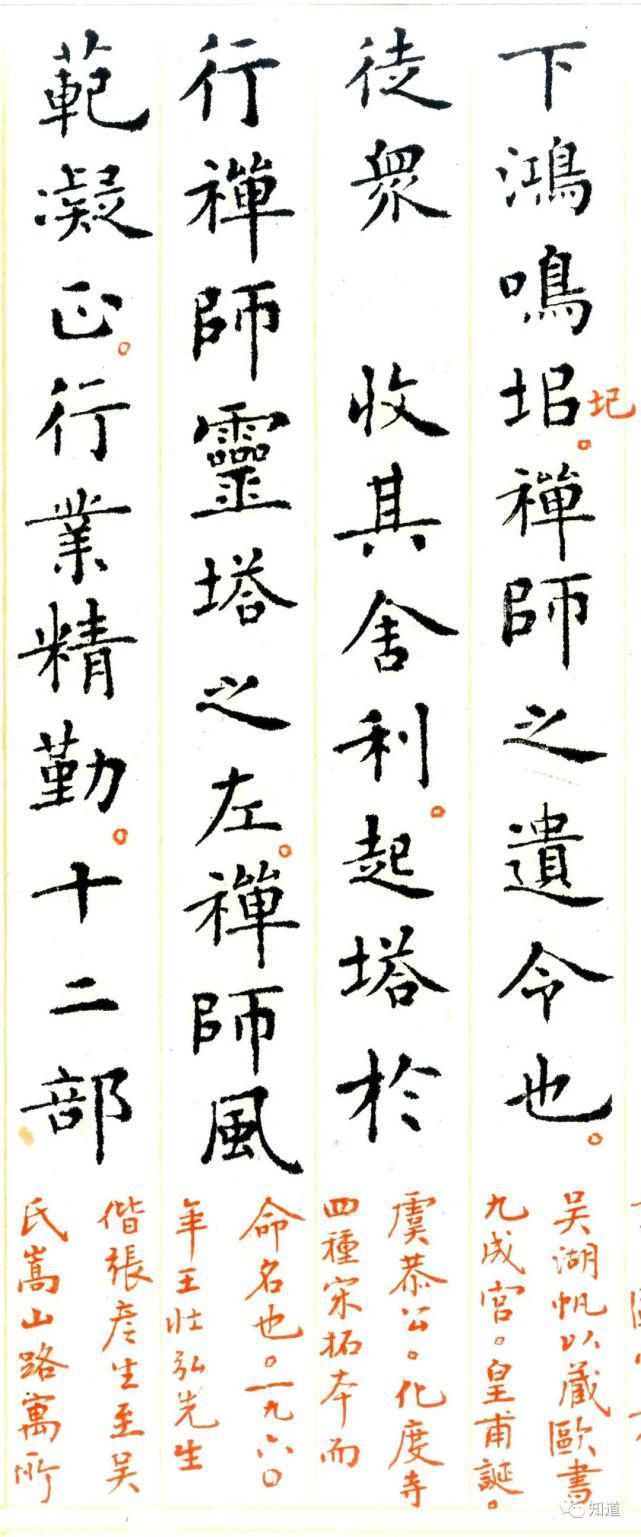 下鴻鳴垖。禪師之遺令也。
圮
徒眾 收其舍利。起塔於
行禪師靈塔之左。禪師風
範凝正。行業精勤。十二部
吳湖帆以藏歐書
九成宮。皇甫誕。
虞恭公。化度寺
四種宋拓本而
命名也。一九六〇
年王壯弘先生
偕張彥生至吳
氏嵩山路寓所
知道